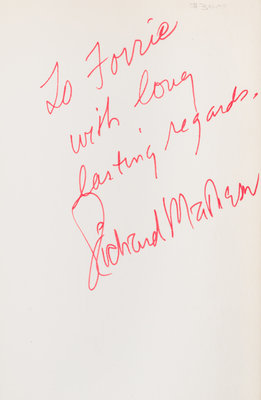 To Forrie
with long
lasting regards,
Richard Matheson